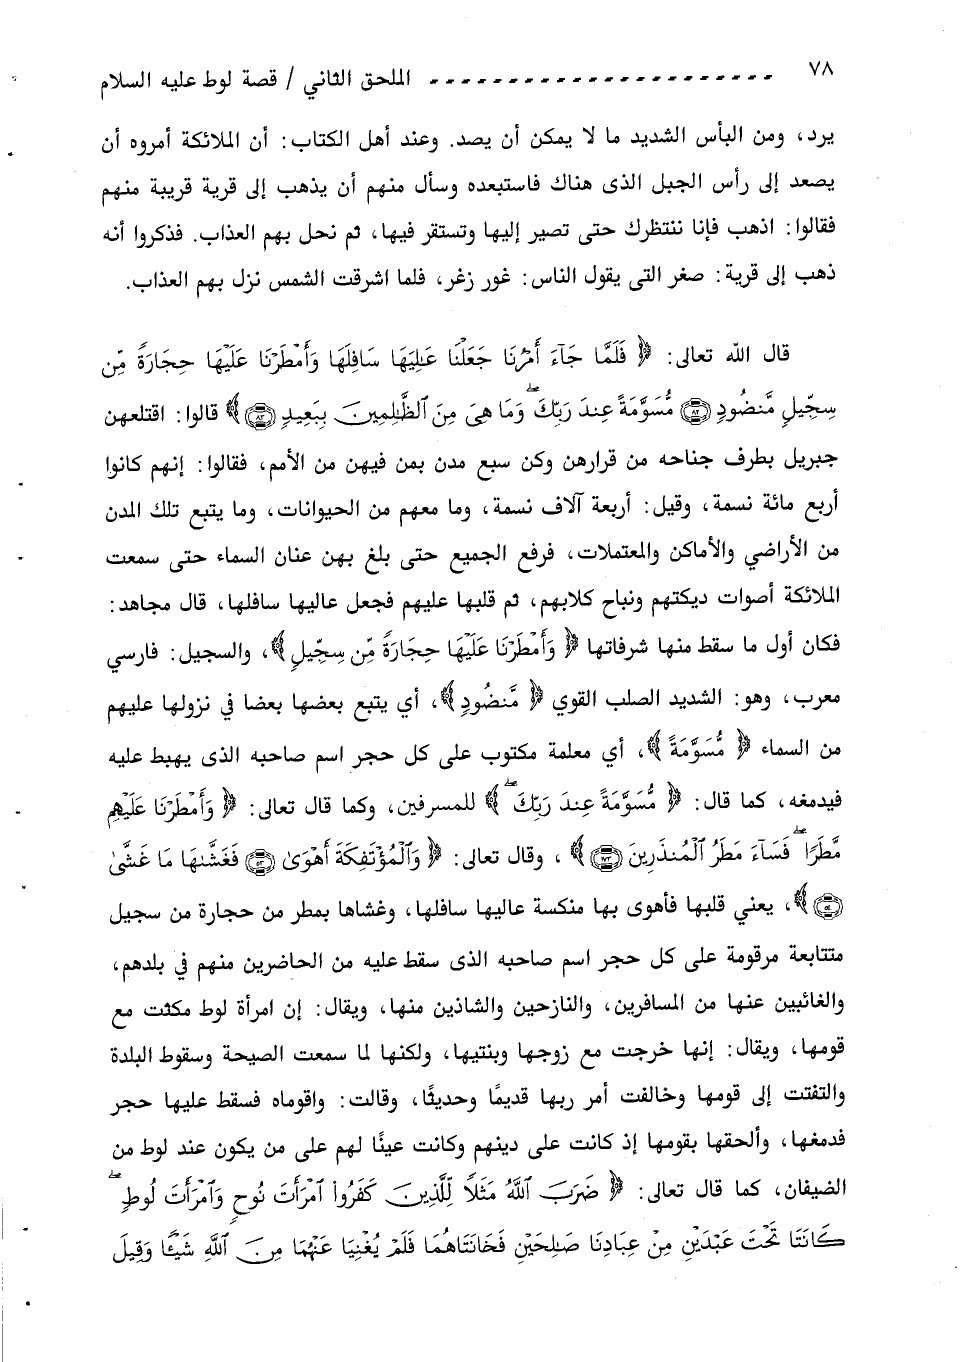 ٧٨ الملحق الثاني / قصة لوط عليه السلام
يرد، ومن البأس الشديد ما لا يمكن أن يصد. وعند أهل الكتاب: أن الملائكة أمروه أن
يصعد إلى رأس الجبل الذى هناك فاستبعده وسأل منهم أن يذهب إلى قرية قريبة منهم
فقالوا: اذهب فإنا ننتظرك حتى تصير إليها وتستقر فيها، ثم نحل بهم العذاب. فذكروا أنه
ذهب إلى قرية: صغر التى يقول الناس: غور زغر، فلما اشرقت الشمس نزل بهم العذاب.
قال الله تعالى: ﴿ فَلَمَّا جَآءَ أَمْرُنَا جَعَلْنَا عَـٰلِيَهَا سَافِلَهَا وَأَمْطَرْنَا عَلَيْهَا حِجَارَةً مِّن
سِجِّيلٍ مَّنضُودٍ ﴿٨٢﴾ مُّسَوَّمَةً عِندَ رَبِّكَ ۖ وَمَا هِىَ مِنَ ٱلظَّـٰلِمِينَ بِبَعِيدٍ ﴿٨٣﴾ ﴾ قالوا: اقتلعهن
جبريل بطرف جناحه من قرارهن وكن سبع مدن بمن فيهن من الأمم، فقالوا: إنهم كانوا
أربع مائة نسمة، وقيل: أربعة آلاف نسمة، وما معهم من الحيوانات، وما يتبع تلك المدن
من الأراضي والأماكن والمعتملات، فرفع الجميع حتى بلغ بهن عنان السماء حتى سمعت
الملائكة أصوات ديكتهم ونباح كلابهم، ثم قلبها عليهم فجعل عاليها سافلها، قال مجاهد:
فكان أول ما سقط منها شرفاتها ﴿ وَأَمْطَرْنَا عَلَيْهَا حِجَارَةً مِّن سِجِّيلٍ ﴾، والسجيل: فارسي
معرب، وهو: الشديد الصلب القوي ﴿ مَّنضُودٍ ﴾، أي يتبع بعضها بعضا في نزولها عليهم
من السماء ﴿ مُّسَوَّمَةً ﴾، أي معلمة مكتوب على كل حجر اسم صاحبه الذى يهبط عليه
فيدمغه، كما قال: ﴿ مُّسَوَّمَةً عِندَ رَبِّكَ ۖ ﴾ للمسرفين، وكما قال تعالى: ﴿ وَأَمْطَرْنَا عَلَيْهِم
مَّطَرًا ۖ فَسَآءَ مَطَرُ ٱلْمُنذَرِينَ ﴿١٧٣﴾ ﴾ ، وقال تعالى: ﴿ وَٱلْمُؤْتَفِكَةَ أَهْوَىٰ ﴿٥٣﴾ فَغَشَّىٰهَا مَا غَشَّىٰ
﴿٥٤﴾ ﴾، يعني قلبها فأهوى بها منكسة عاليها سافلها، وغشاها بمطر من حجارة من سجيل
متتابعة مرقومة على كل حجر اسم صاحبه الذى سقط عليه من الحاضرين منهم في بلدهم،
والغائبين عنها من المسافرين، والنازحين والشاذين منها، ويقال: إن امرأة لوط مكثت مع
قومها، ويقال: إنها خرجت مع زوجها وبنتيها، ولكنها لما سمعت الصيحة وسقوط البلدة
والتفتت إلى قومها وخالفت أمر ربها قديمًا وحديثًا، وقالت: واقوماه فسقط عليها حجر
فدمغها، وألحقها بقومها إذ كانت على دينهم وكانت عينًا لهم على من يكون عند لوط من
الضيفان، كما قال تعالى: ﴿ ضَرَبَ ٱللَّهُ مَثَلًا لِّلَّذِينَ كَفَرُوا۟ ٱمْرَأَتَ نُوحٍ وَٱمْرَأَتَ لُوطٍ ۖ
كَانَتَا تَحْتَ عَبْدَيْنِ مِنْ عِبَادِنَا صَـٰلِحَيْنِ فَخَانَتَاهُمَا فَلَمْ يُغْنِيَا عَنْهُمَا مِنَ ٱللَّهِ شَيْـًٔا وَقِيلَ